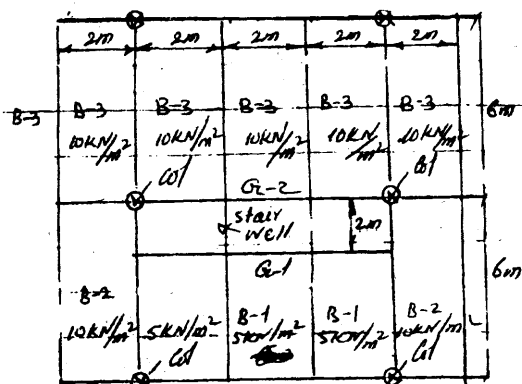 2m 2m 2m 2m 2m
B-3 B-3 B-3 B-3 B-3 B-3
6m
10KN/m² 10KN/m² 10KN/m² 10KN/m² 10KN/m²
Col Col
G-2
stair
well
2m
G-1
6m
B-2 B-1 B-1 B-2
10KN/m² 5KN/m² 5KN/m² 5KN/m² 10KN/m
Col Col